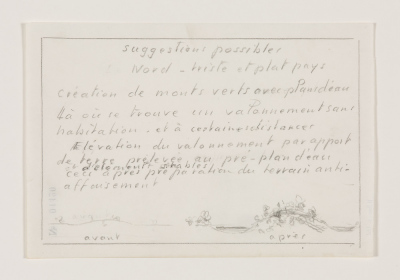 suggestions possibles
Nord - triste et plat pays
Création de monts verts avec plan d'eau
là où se trouve un vallonnement sans
habitation - et à certaines distances
Elévation du vallonnement par apport
de terre prélevée au pré-plan d'eau
ceci après préparation du terrain anti-
affaissement
avant
après